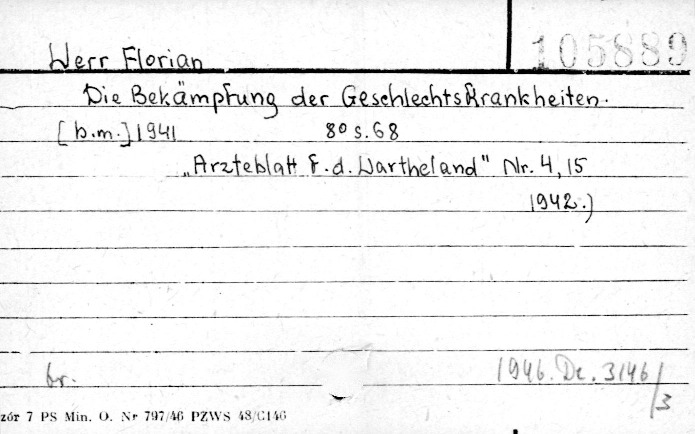 105889
Werr Florian
Die Bekämpfung der Geschlechtskrankheiten.
[b.m.] 1941 8° s. 68
„Arzteblatt f. d. Wartheland" Nr. 4, 15
1942.)
br. 1946. Dr. 3146/3
zór 7 PS Min. O. Nr 797/46 PZWS 48/C146